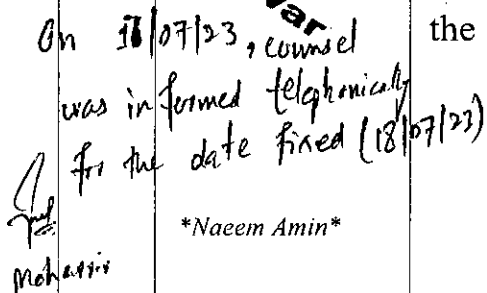 war
On /07/23, counsel the
was informed telephonically
for the date fixed (18/07/23)
*Naeem Amin*
Moharrir